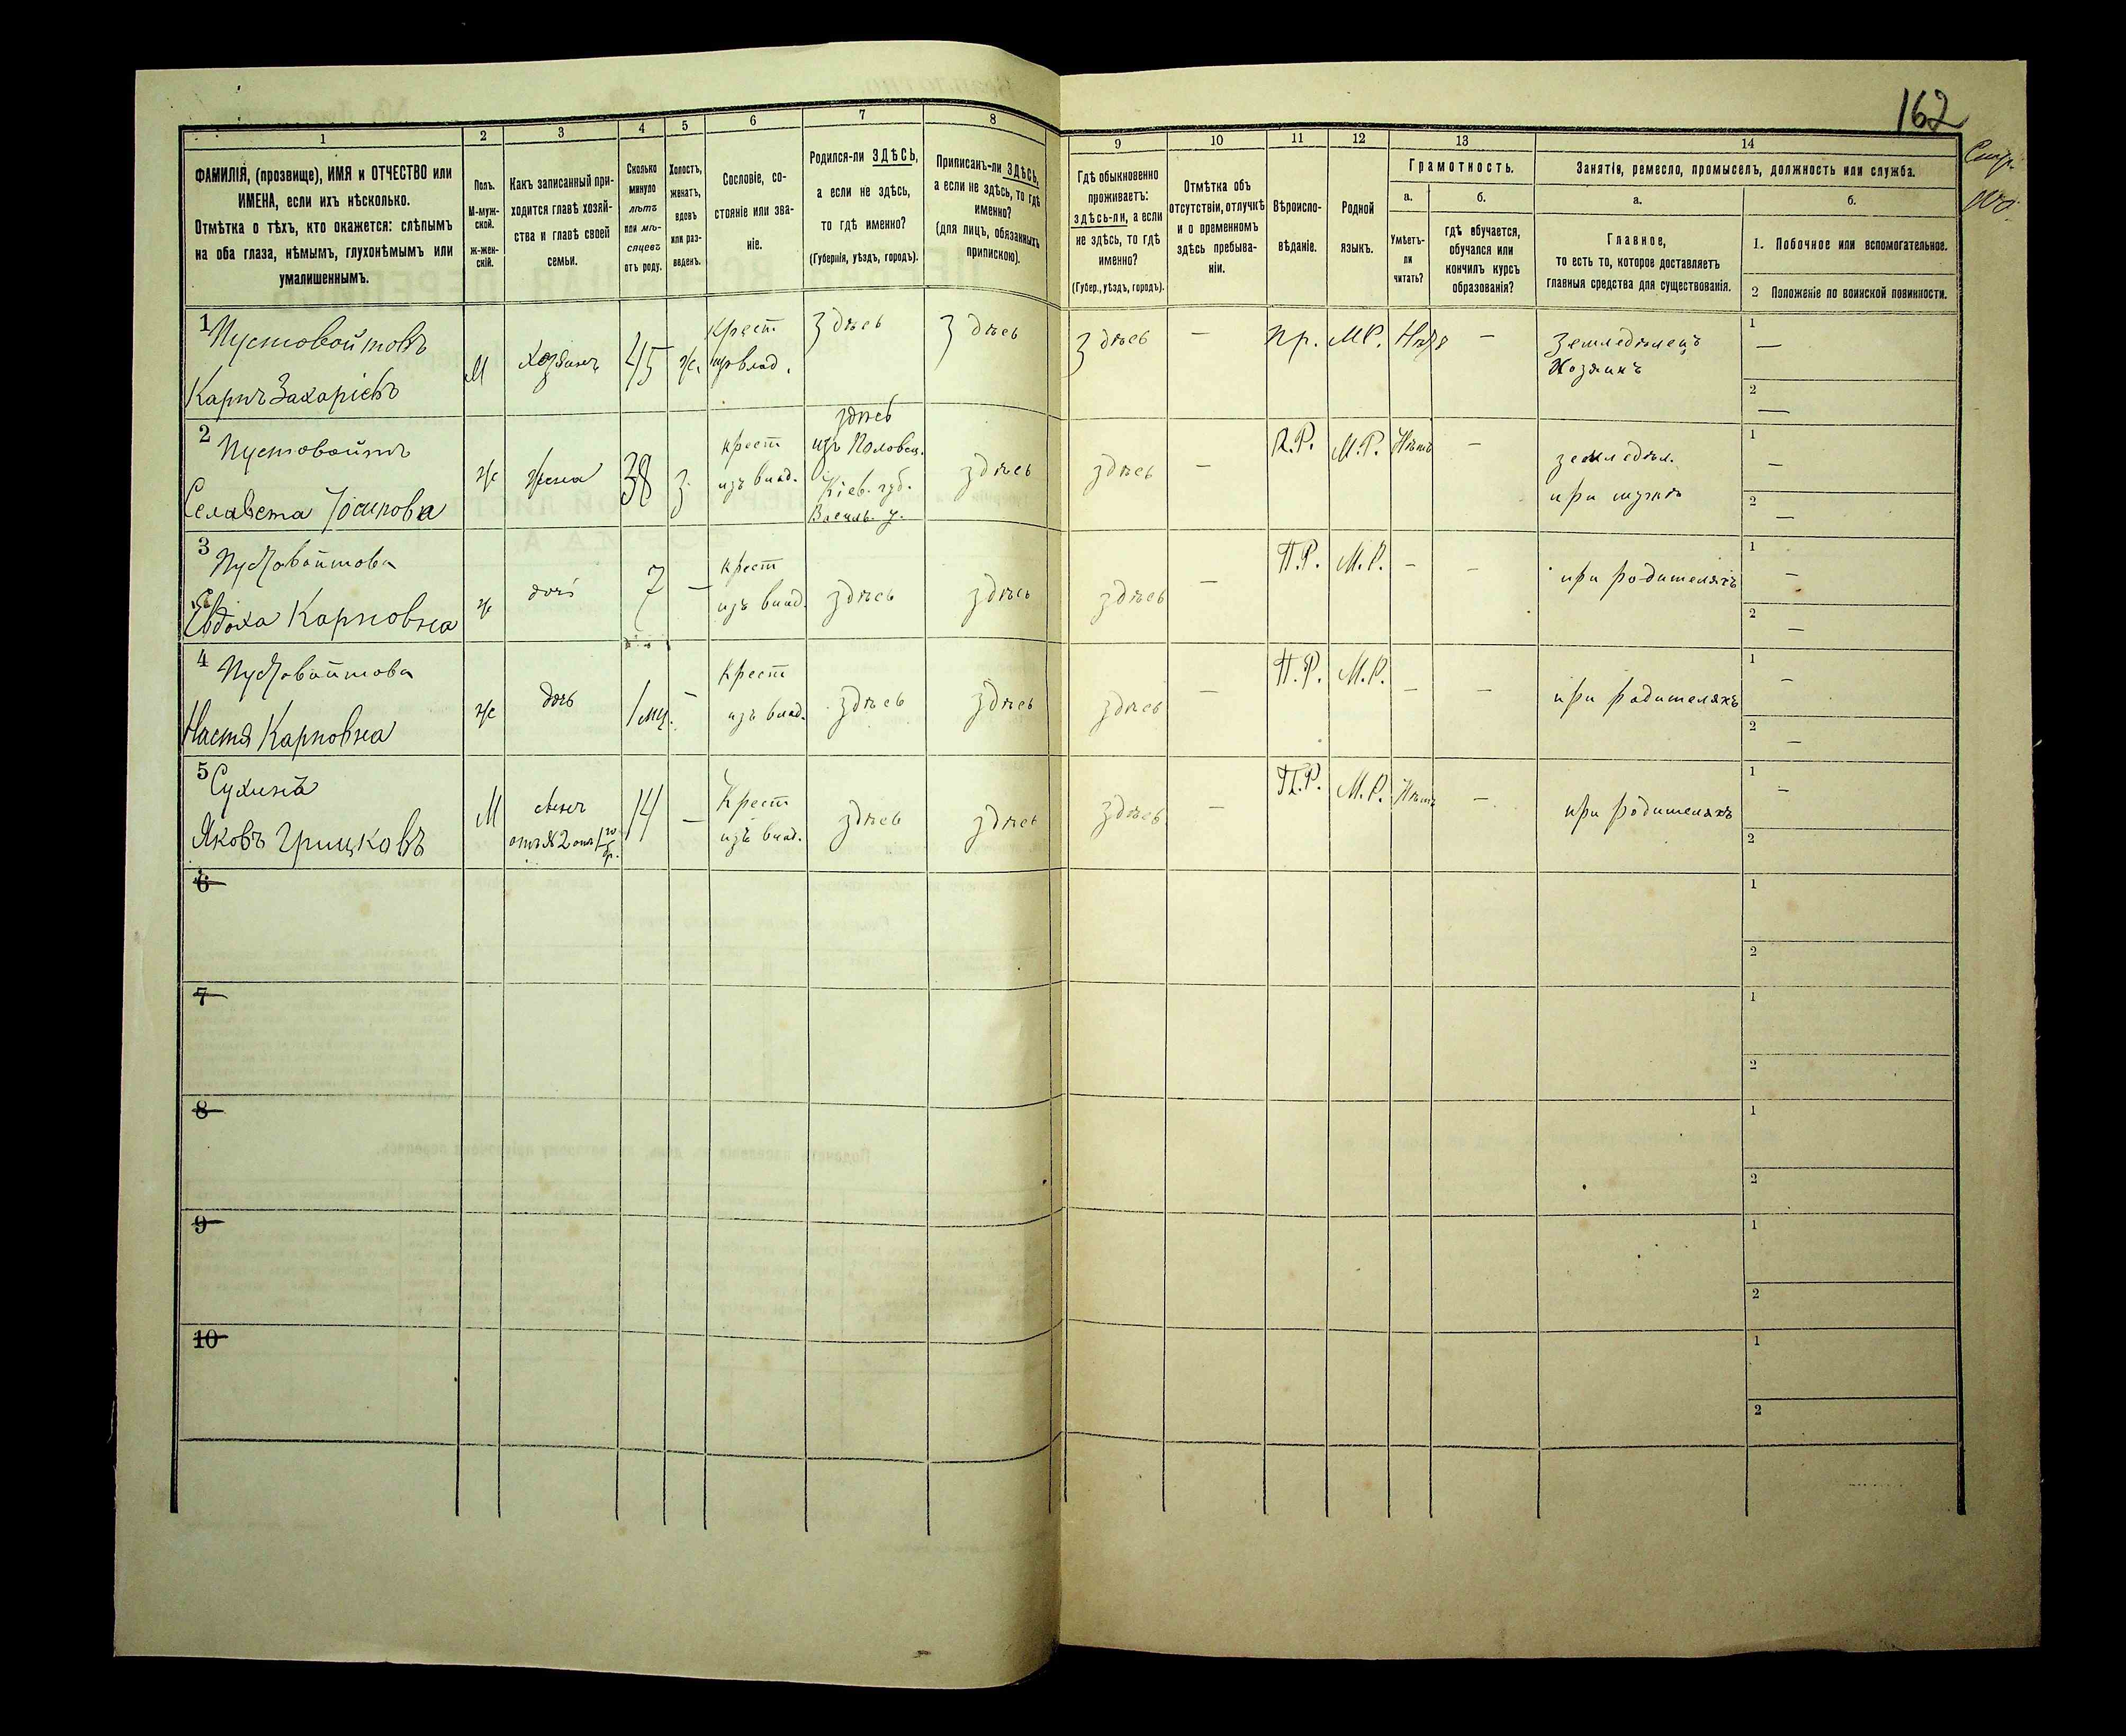 162
1 2 3 4 5 6 7 8 9 10 11 12 13 14
ФАМИЛІЯ, (прозвище), ИМЯ и ОТЧЕСТВО или
ИМЕНА, если ихъ нѣсколько.
Отмѣтка о тѣхъ, кто окажется: слѣпымъ
на оба глаза, нѣмымъ, глухонѣмымъ или
умалишеннымъ.
Полъ.
М-муж-
ской.
Ж-жен-
скій.
Какъ записанный при-
ходится главѣ хозяй-
ства и главѣ своей
семьи.
Сколько
минуло
лѣтъ
или мѣ-
сяцевъ
отъ роду.
Холостъ,
женатъ,
вдовъ
или раз-
веденъ.
Сословіе, со-
стояніе или зва-
ніе.
Родился-ли ЗДѢСЬ,
а если не здѣсь,
то гдѣ именно?
(Губернія, уѣздъ, городъ).
Приписанъ-ли ЗДѢСЬ,
а если не здѣсь, то гдѣ
именно?
(для лицъ, обязанныхъ
припискою).
Гдѣ обыкновенно
проживаетъ:
здѣсь-ли, а если
не здѣсь, то гдѣ
именно?
(Губер., уѣздъ, городъ).
Отмѣтка объ
отсутствіи, отлучкѣ
и о временномъ
здѣсь пребыва-
ніи.
Вѣроиспо-
вѣданіе.
Родной
языкъ.
Грамотность.
а.
Умѣетъ-
ли
читать?
б.
гдѣ обучается,
обучался или
кончилъ курсъ
образованія?
Занятія, ремесло, промыселъ, должность или служба.
а.
Главное,
то есть то, которое доставляетъ
главныя средства для существованія.
б.
1. Побочное или вспомогательное.
2 Положеніе по воинской повинности.
1 Пустовойтовъ
Карпъ Захаріевъ
М
Хозяинъ
45
ж.
Крест
влад.
Здѣсь
Здѣсь
Здѣсь
—
Пр.
М.Р.
—
Земледѣлецъ
Хозяинъ
1
—
2
—
2 Пустовойтъ
Іосиповна
ж
жена
38
з.
крест
изъ влад.
здѣсь
изъ Половец.
Кіев. губ.
Василь. у.
здѣсь
здѣсь
—
П.Р.
М.Р.
Нѣтъ
—
земледѣл.
при мужѣ
1
—
2
—
3 Пустовойтова
Евдоха Карповна
ж
дочь
7
—
крест
изъ влад.
здѣсь
здѣсь
здѣсь
—
П.Р.
М.Р.
—
—
при родителяхъ
1
—
2
—
4 Пустовойтова
Настя Карповна
ж
дочь
1 мц.
—
крест
изъ влад.
здѣсь
здѣсь
здѣсь
—
П.Р.
М.Р.
—
—
при родителяхъ
1
—
2
—
5 Сухинъ
Яковъ Грицковъ
М
сынъ
отъ № 2 отъ 1го
бр.
14
—
Крест
изъ влад.
здѣсь
здѣсь
здѣсь
—
П.Р.
М.Р.
Нѣтъ
—
при родителяхъ
1
—
2
6
1
2
7
1
2
8
1
2
9
1
2
10
1
2